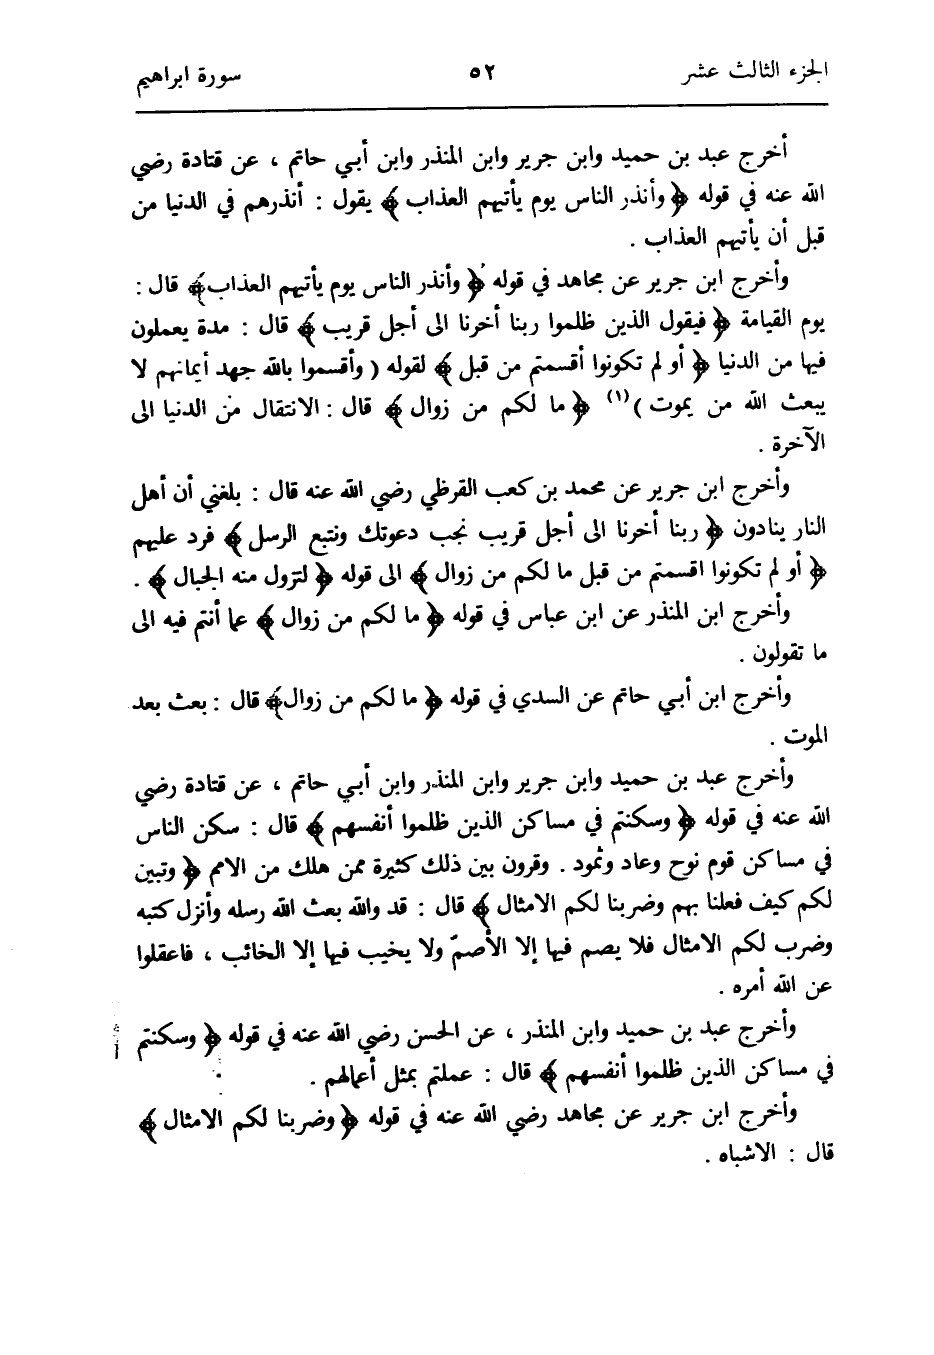 الجزء الثالث عشر
٥٢
سورة ابراهيم
أخرج عبد بن حميد وابن جرير وابن المنذر وابن أبي حاتم ، عن قتادة رضي
الله عنه في قوله ﴿ وأنذر الناس يوم يأتيهم العذاب ﴾ يقول : أنذرهم في الدنيا من
قبل أن يأتيهم العذاب .
وأخرج ابن جرير عن مجاهد في قوله ﴿ وأنذر الناس يوم يأتيهم العذاب﴾ قال :
يوم القيامة ﴿ فيقول الذين ظلموا ربنا أخرنا الى أجل قريب ﴾ قال : مدة يعملون
فيها من الدنيا ﴿ أو لم تكونوا أقسمتم من قبل ﴾ لقوله ( وأقسموا بالله جهد أيمانهم لا
يبعث الله من يموت ) (١) ﴿ ما لكم من زوال ﴾ قال : الانتقال من الدنيا الى
الآخرة .
وأخرج ابن جرير عن محمد بن كعب القرظي رضي الله عنه قال : بلغني أن أهل
النار ينادون ﴿ ربنا أخرنا الى أجل قريب نجب دعوتك ونتبع الرسل ﴾ فرد عليهم
﴿ أو لم تكونوا اقسمتم من قبل ما لكم من زوال ﴾ الى قوله ﴿ لتزول منه الجبال ﴾ .
وأخرج ابن المنذر عن ابن عباس في قوله ﴿ ما لكم من زوال ﴾ عما أنتم فيه الى
ما تقولون .
وأخرج ابن أبي حاتم عن السدي في قوله ﴿ ما لكم من زوال﴾ قال : بعث بعد
الموت .
وأخرج عبد بن حميد وابن جرير وابن المنذر وابن أبي حاتم ، عن قتادة رضي
الله عنه في قوله ﴿ وسكنتم في مساكن الذين ظلموا أنفسهم ﴾ قال : سكن الناس
في مساكن قوم نوح وعاد وثمود . وقرون بين ذلك كثيرة ممن هلك من الامم ﴿ وتبين
لكم كيف فعلنا بهم وضربنا لكم الامثال ﴾ قال : قد والله بعث الله رسله وأنزل كتبه
وضرب لكم الامثال فلا يصم فيها إلا الأصمّ ولا يخيب فيها إلا الخائب ، فاعقلوا
عن الله أمره .
وأخرج عبد بن حميد وابن المنذر ، عن الحسن رضي الله عنه في قوله ﴿ وسكنتم
في مساكن الذين ظلموا أنفسهم ﴾ قال : عملتم بمثل أعمالهم .
وأخرج ابن جرير عن مجاهد رضي الله عنه في قوله ﴿ وضربنا لكم الامثال ﴾
قال : الاشباه .